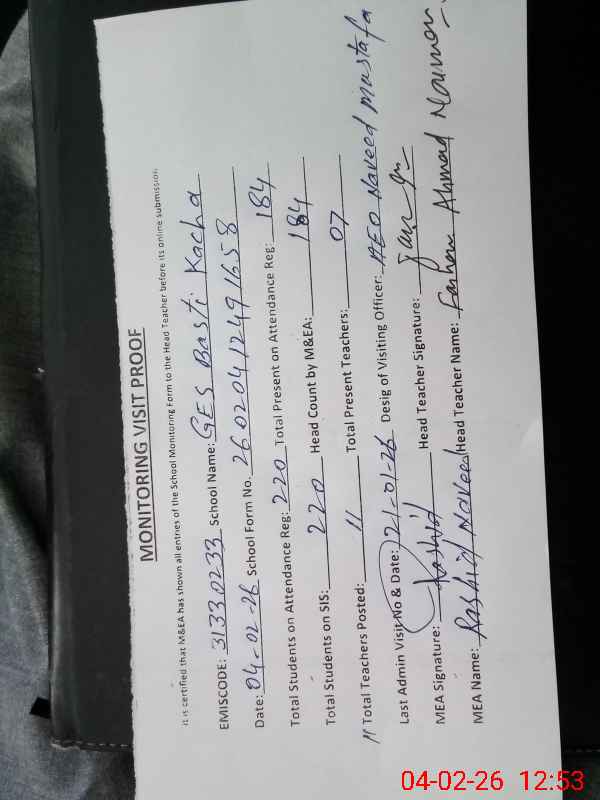 MONITORING VISIT PROOF
It is certified that M&EA has shown all entries of the School Monitoring Form to the Head Teacher before its online submission.
EMISCODE: 31330233 School Name: GES Basti Kacha
Date: 04-02-26 School Form No. 2602041249 1658
Total Students on Attendance Reg: 220 Total Present on Attendance Reg: 184
Total Students on SIS: 220 Head Count by M&EA: 184
11 Total Teachers Posted: 11 Total Present Teachers: 07
Last Admin Visit No & Date: 21-01-26 Desig of Visiting Officer: AEO Naveed Mustafa
MEA Signature: Rashid Head Teacher Signature:
MEA Name: Rashid Naveed Head Teacher Name: Farhan Ahmad Nouman
04-02-26 12:53